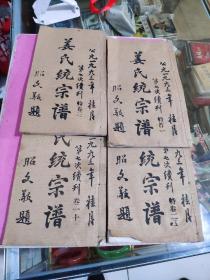 公元一九九三年 桂月
第七次續刊 特卷二
姜氏統宗譜
昭文敬題
公元一九九三年 桂月
第七次續刊 特卷
姜氏統宗譜
昭文敬題
元一九九三年 桂月
第七次續刊 卷一十
氏統宗譜
昭文敬題
元一九九三年 桂月
第七次續刊 特卷
氏統宗譜
昭文敬題